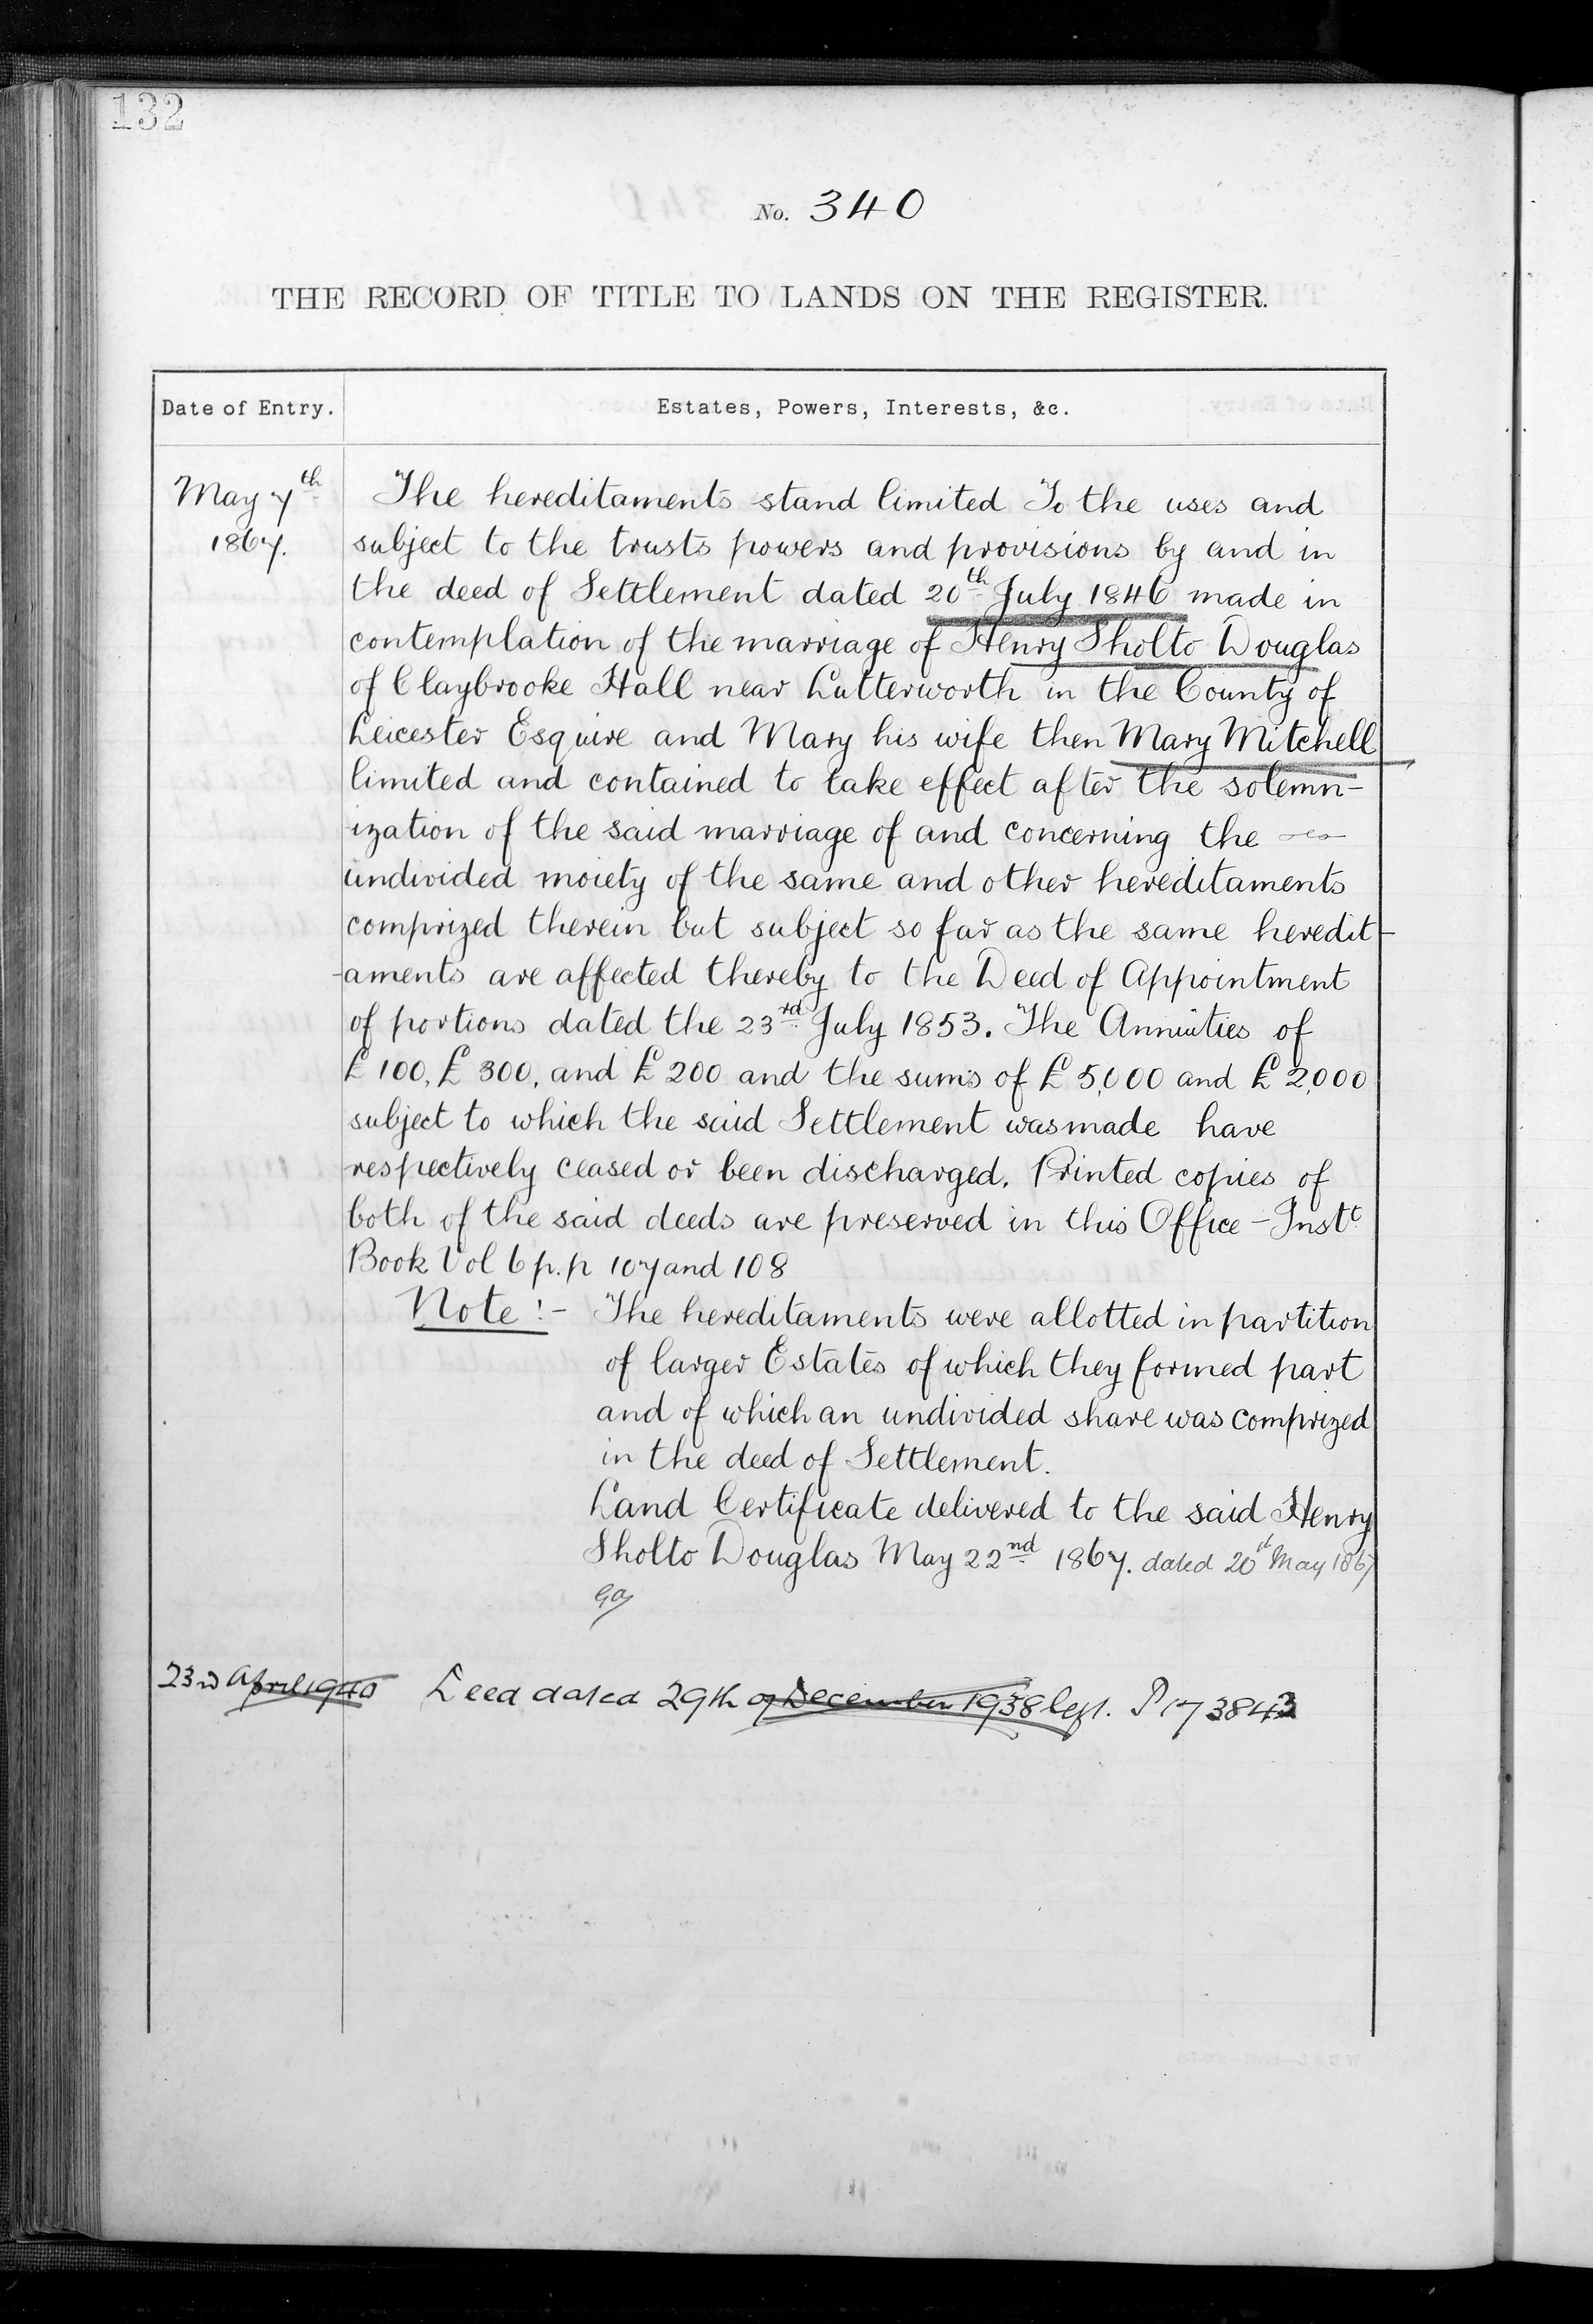 132
No. 340
THE RECORD OF TITLE TO LANDS ON THE REGISTER.
Date of Entry. Estates, Powers, Interests, &c.
May 7th The hereditaments stand limited To the uses and
1867. subject to the trusts powers and provisions by and in
the deed of Settlement dated 20th July 1846 made in
contemplation of the marriage of Henry Sholto Douglas
of Claybrooke Hall near Lutterworth in the County of
Leicester Esquire and Mary his wife then Mary Mitchell
limited and contained to take effect after the solemn-
ization of the said marriage of and concerning the
undivided moiety of the same and other hereditaments
comprized therein but subject so far as the same heredit-
-aments are affected thereby to the Deed of Appointment
of portions dated the 23rd July 1853. The Annuities of
£100, £300, and £200 and the sums of £5,000 and £2,000
subject to which the said Settlement was made have
respectively ceased or been discharged. Printed copies of
both of the said deeds are preserved in this Office - Instt
Book Vol 6 p.p 107 and 108
Note :- The hereditaments were allotted in partition
of larger Estates of which they formed part
and of which an undivided share was comprized
in the deed of Settlement.
Land Certificate delivered to the said Henry
Sholto Douglas May 22nd 1867. dated 20th May 1867
23rd April 1940 Deed dated 29th of December 1938 left. P 173843